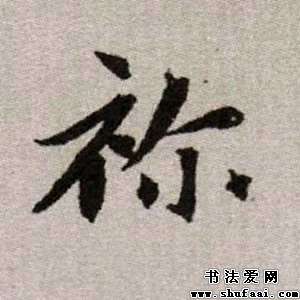 祢
书法爱网
www.shufaai.com